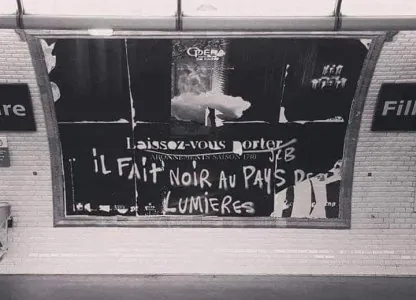 OPERA
Laissez-vous porter
JLB
ABONNEMENTS SAISON 17/18
iL FAiT NOIR AU PAYS DES
LUMIERES
Fill